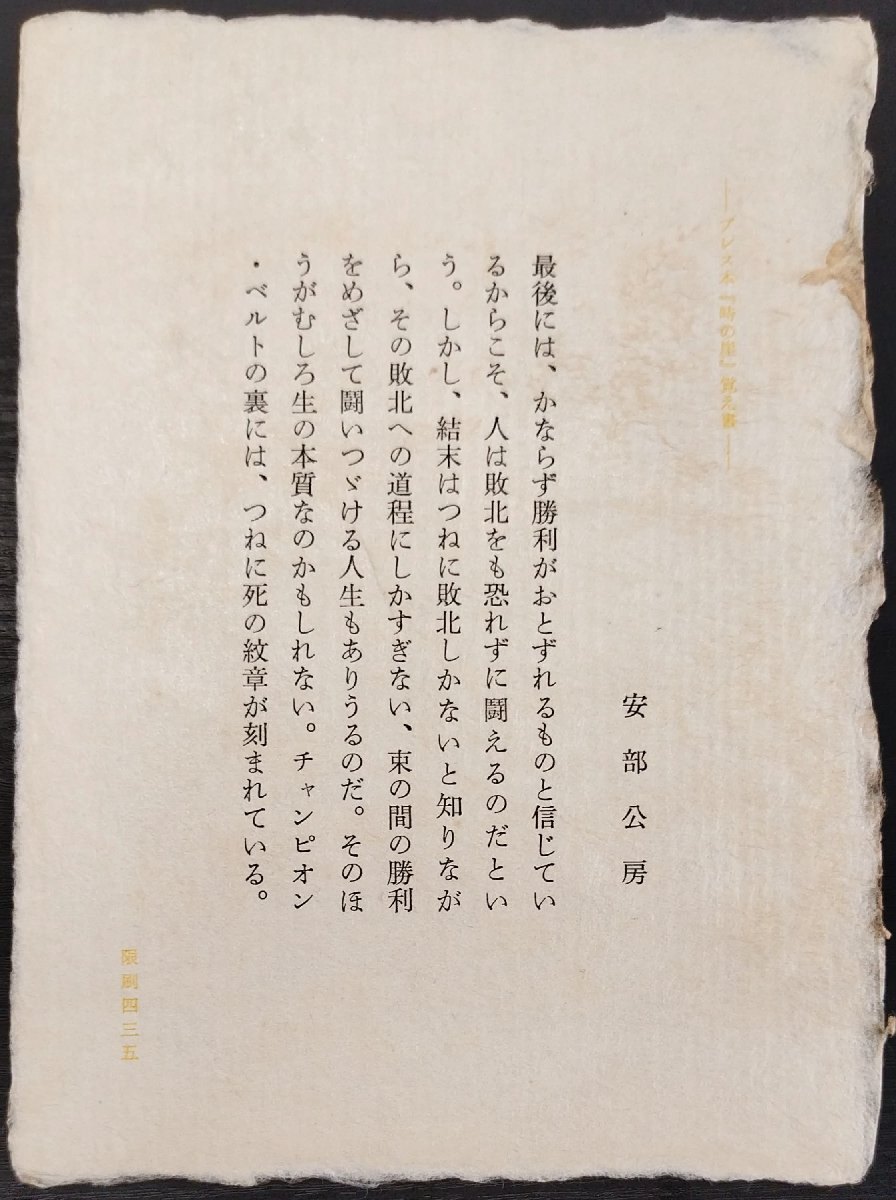 ──プレス本『時の崖』覚え書──
安部公房
最後には、かならず勝利がおとずれるものと信じてい
るからこそ、人は敗北をも恐れずに闘えるのだとい
う。しかし、結末はつねに敗北しかないと知りなが
ら、その敗北への道程にしかすぎない、束の間の勝利
をめざして闘いつゞける人生もありうるのだ。そのほ
うがむしろ生の本質なのかもしれない。チャンピオン
・ベルトの裏には、つねに死の紋章が刻まれている。
限刷四三五